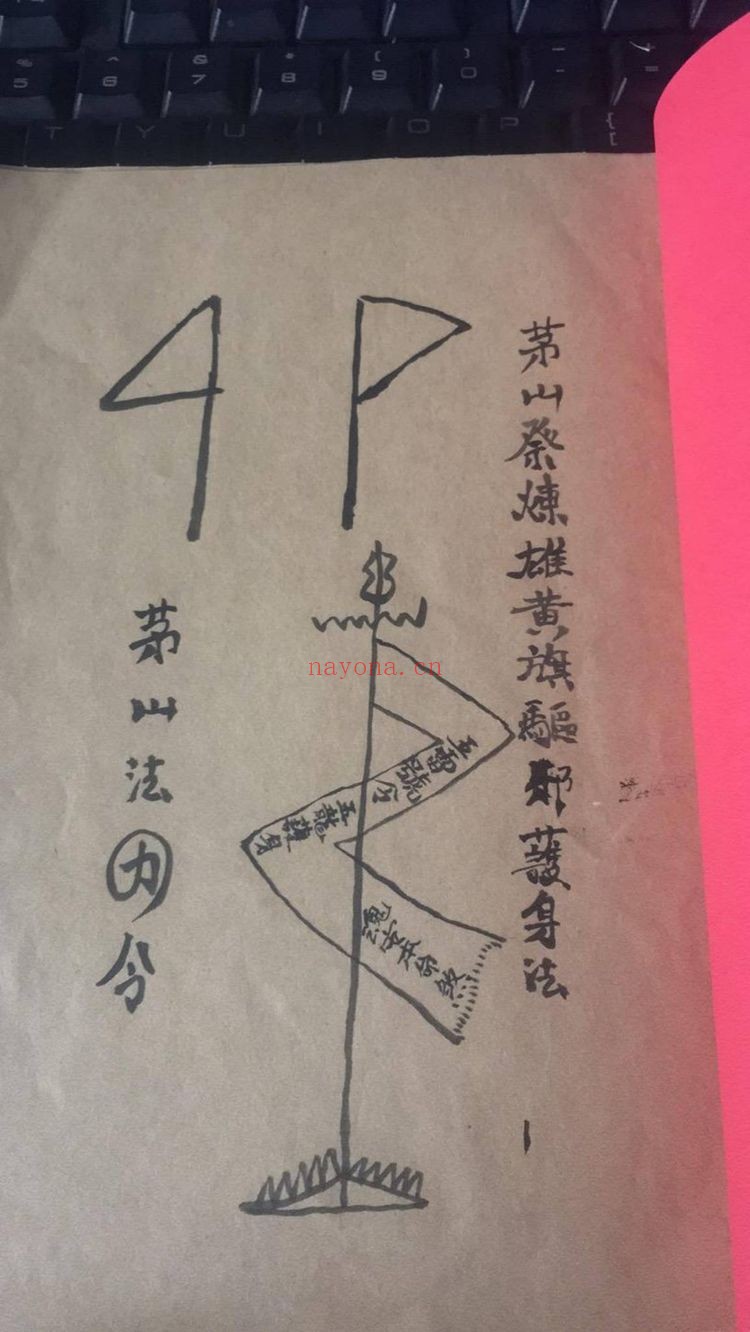 茅山祭煉雄黄旗驅邪護身法
五雷號令
五龍護身
茅山法
令
nayona.cn
5
6
7
8
9
0
T Y U I O P